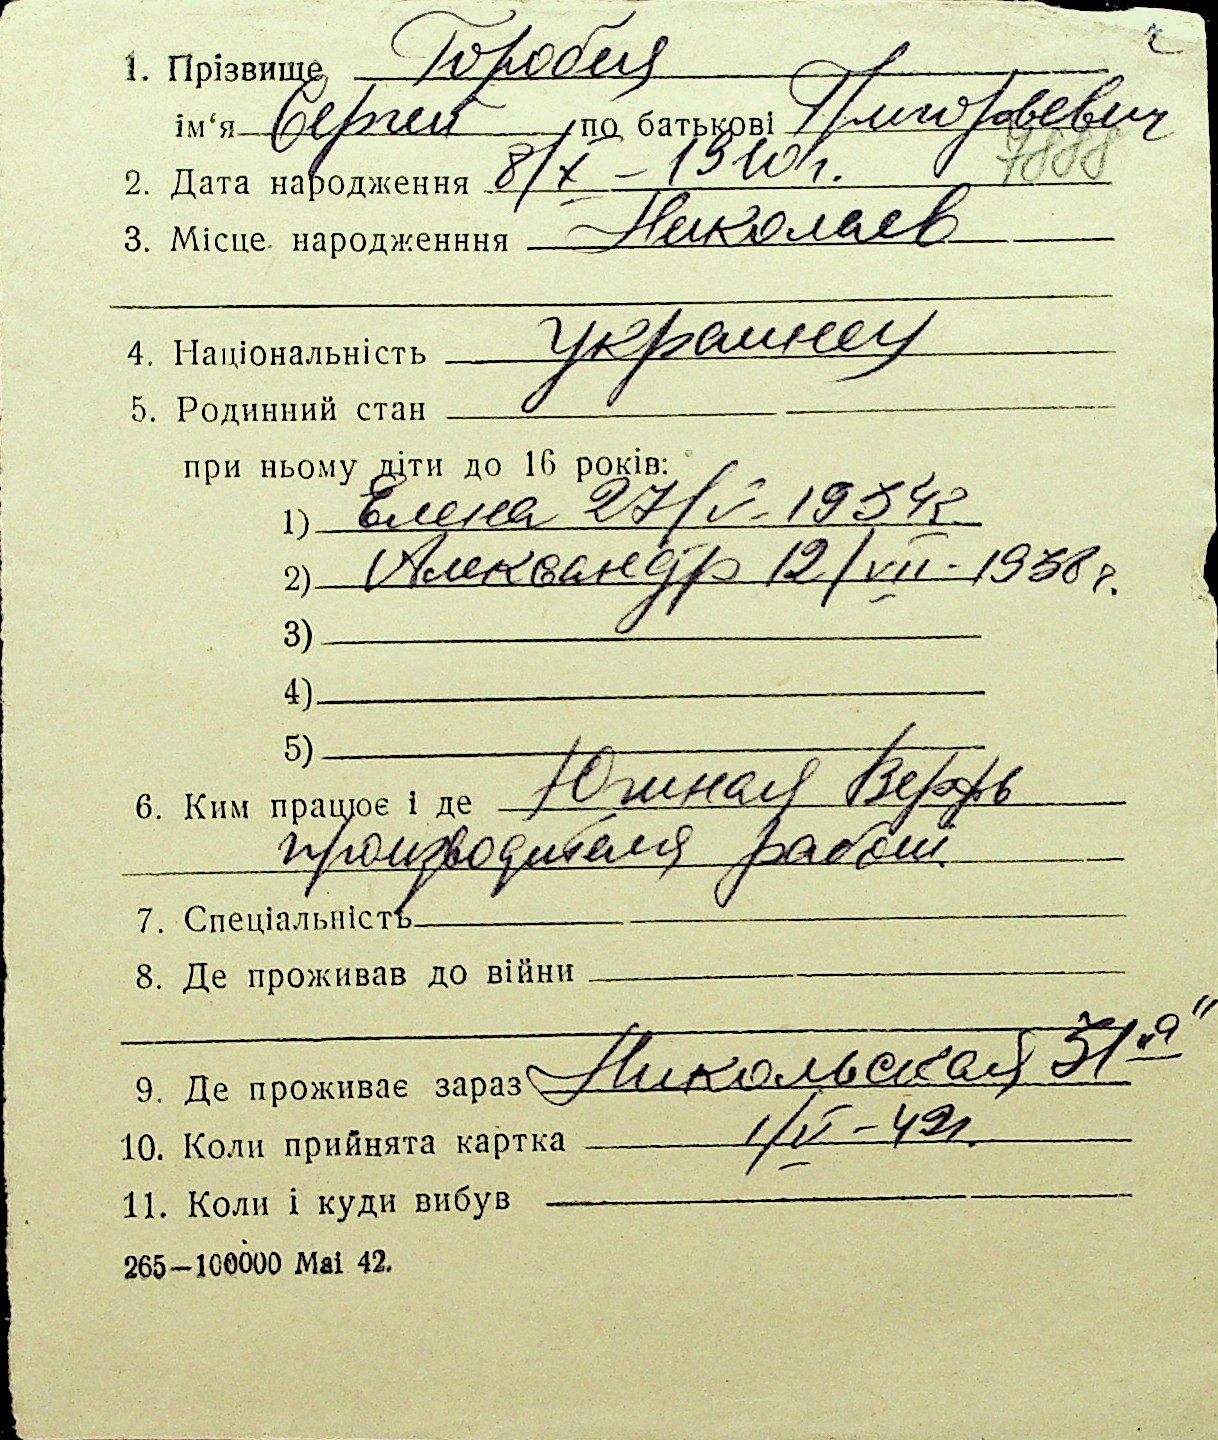 1. Прізвище Горобец
ім‘я Сергей по батькові Григорьевич
7888
2. Дата народження 8/X – 1910г.
3. Місце народженння Николаев
4. Національність украинец
5. Родинний стан
при ньому діти до 16 років:
1) Елена 27/V - 1934г.
2) Александр 12/VII - 1938г.
3)
4)
5)
6. Ким працює і де Южная Верфь
производителя работ.
7. Спеціальність
8. Де проживав до війни
9. Де проживає зараз Никольская 31 „а"
10. Коли прийнята картка 1/VI – 42г.
11. Коли і куди вибув
265—100000 Mai 42.